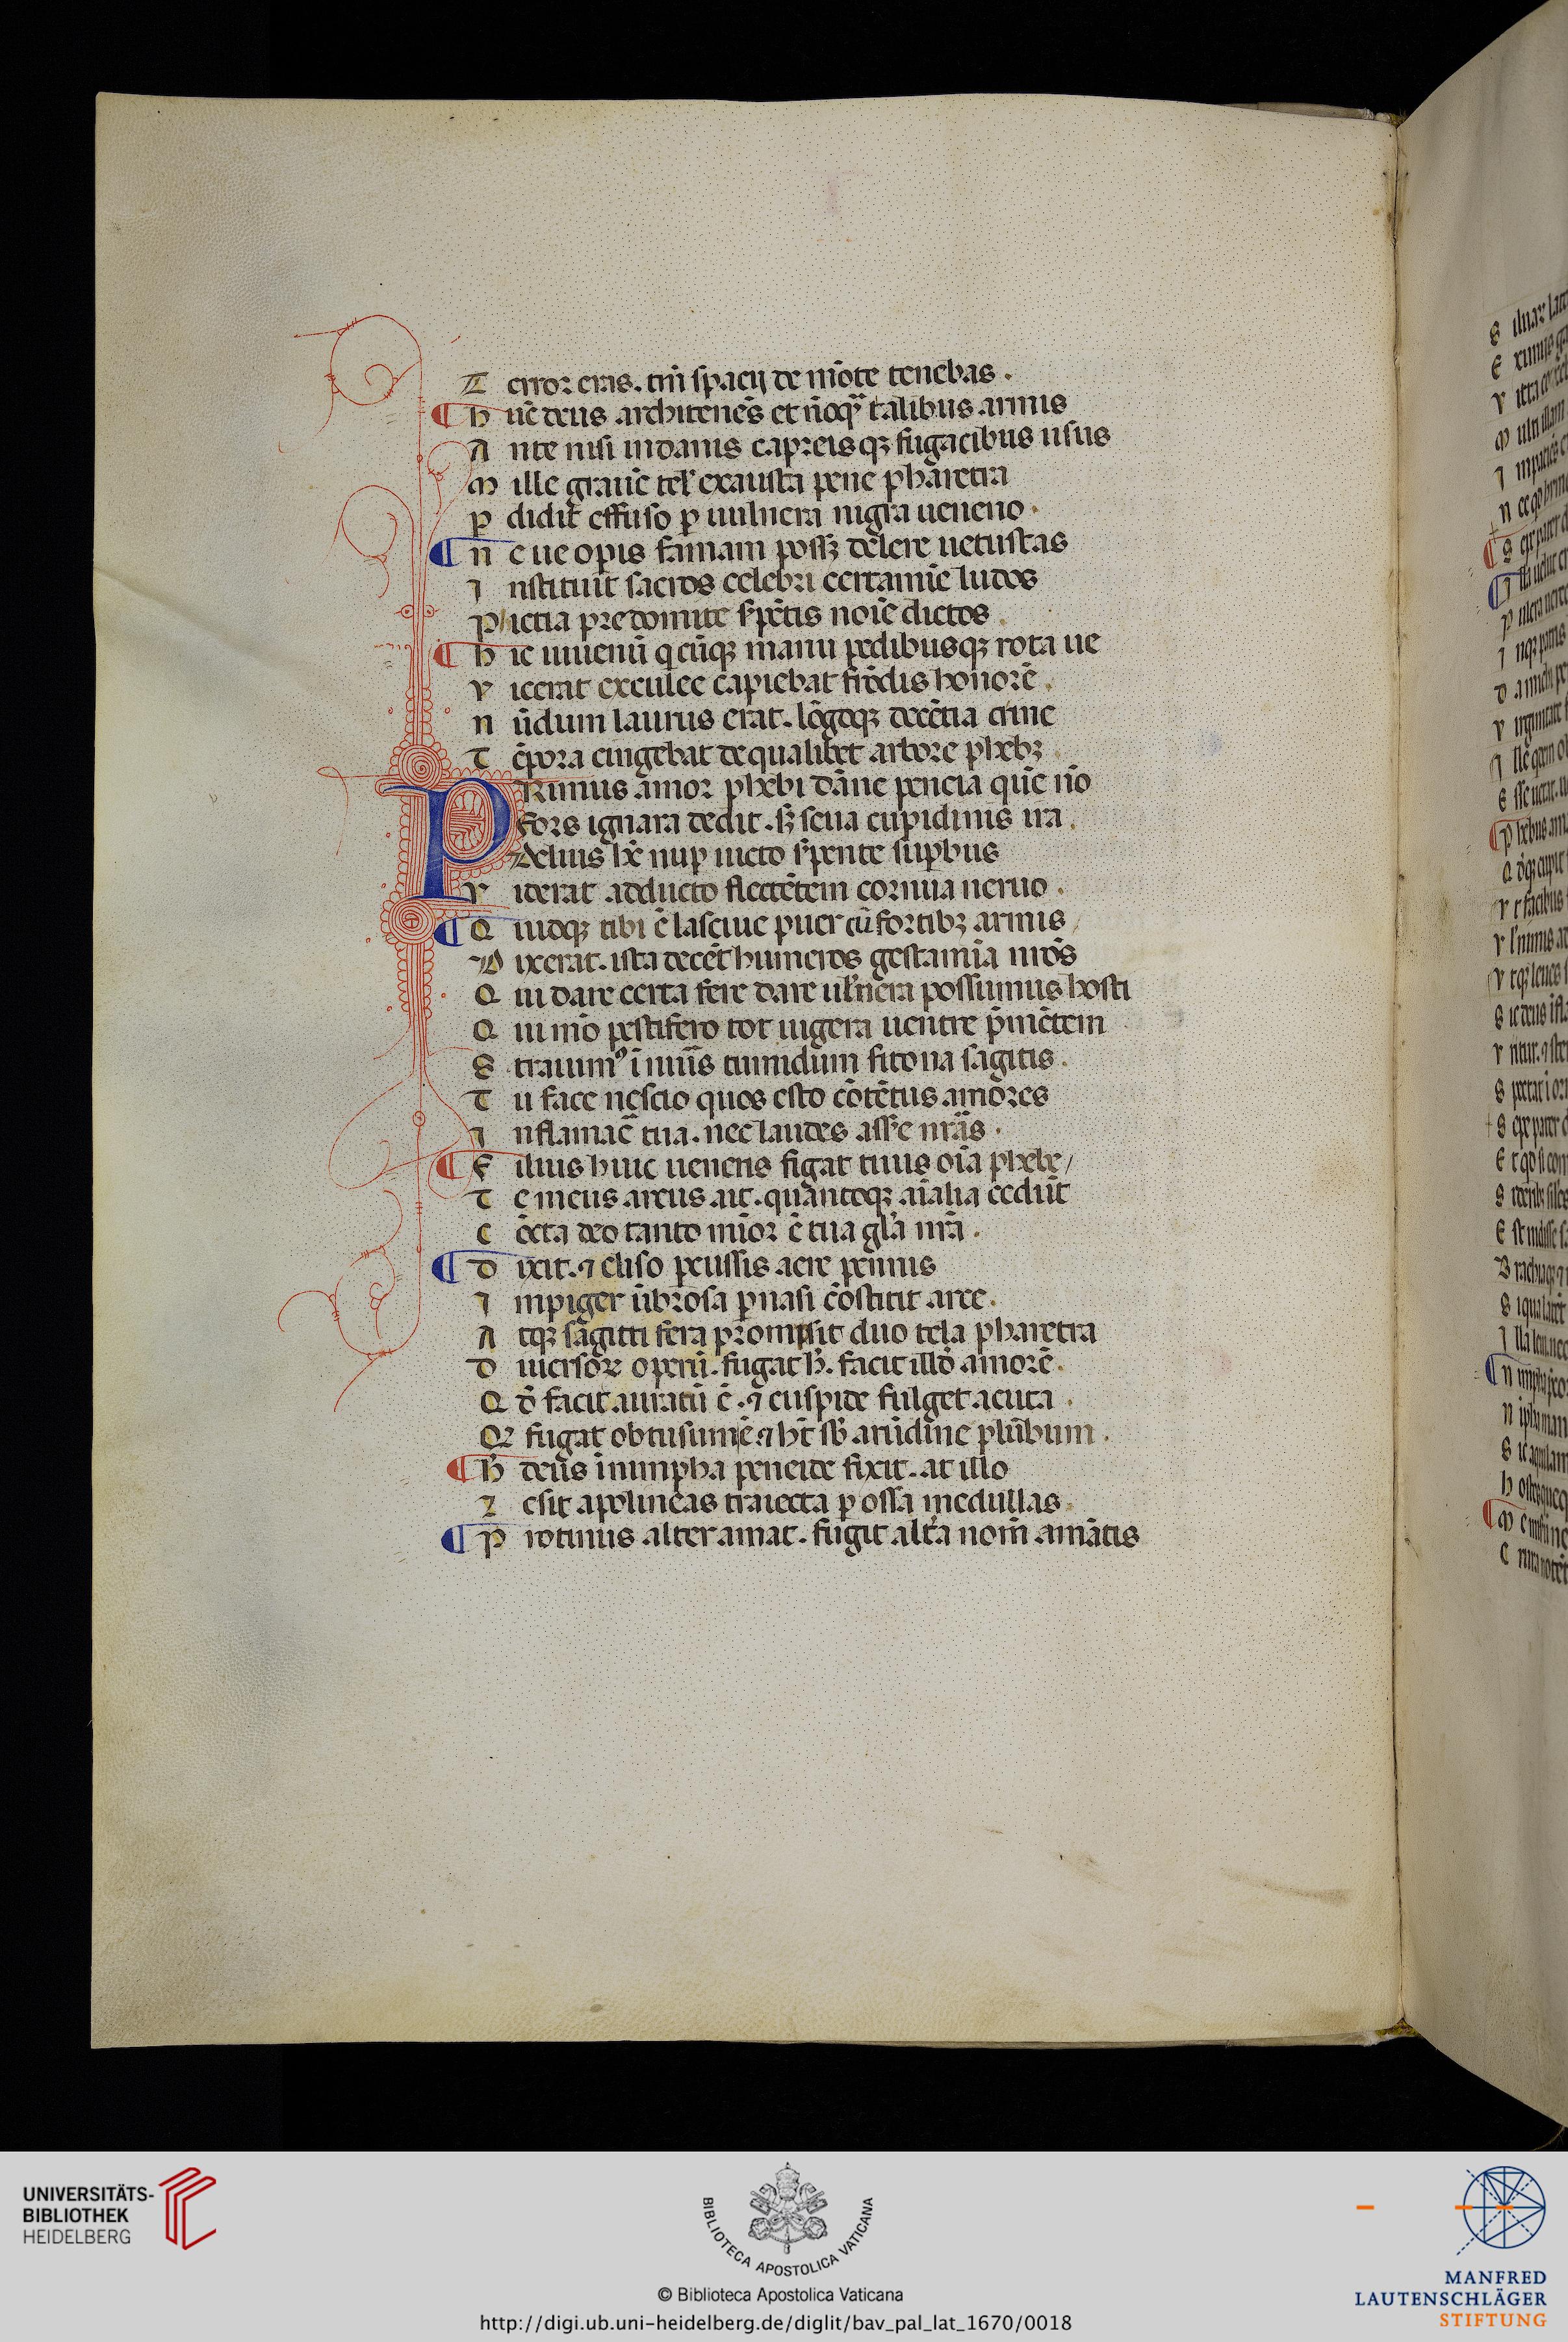 T error eras. tm̄ spacij de mōte tenebas.
h uc̄ deus architenēs et nūqᵃ talibus armis
A nte nisi indamis capreisqꝫ fugacibus usus
M ille grauē tel' exausta pene pharetra
P didit effuso ꝑ uulnera nigra ueneno.
N e ue opis famam possꝫ delere uetustas
I nstituit sacros celebri certamīe ludos
P hictia pre domite s̓pētis noīe dictos
h ic iuuenū q̄cūqꝫ manu pedibusqꝫ rota ue
V icerat exculee capiebat frōdis honorē.
N ūdum laurus erat. lōgoqꝫ decētia crine
T ēpora cingebat de qualibet arbore phebꝫ
PRimus amor phebi dāne peneia quē nō
fors ignara dedit. sꝫ seua cupidinis ira.
Delius hc̄ nuꝑ uicto s̓pente suꝑbus
V iderat adducto flectētem cornua neruo.
Q uidqꝫ tibi ē lasciue puer cū fortibꝫ armis
D ixerat. ista decēt humeros gestamīa nrōs
Q ui dare certa fere dare ul'nera possumus hosti
Q ui mō pestifero tot iugera uentre p̄mētem
S trauimꝰ īnūis tumidum fitona sagitis.
T u face nescio quos esto cōtētus amores
I nflamac̄ tua. nec laudes ass̓e nr̄as.
F ilius huic ueneris figat tuus oīa phebe/
T e meus arcus ait. quantoqꝫ aīalia cedūt
C ōcta deo tanto mīor ē tua gl'a nr̄a.
D ixit. ⁊ eliso ꝑcussis aere pennis
I mpiger ūbrosa ꝑnasi cōstitit arce.
A tqꝫ sagitti fera promisit duo tela pharetra
D iuersoꝝ operū. fugat h̓. facit illd̓ amorē.
Q d̓ facit auratū ē. ⁊ cuspide fulget acuta.
Q̇ fugat obtusum ē ⁊ hт̄ sb̓ arūdine plūbum.
h̓ deus ī nimpha peneide fixit. at illo
L esit apolineas traiecta ꝑ ossa medullas.
P rotinus alter amat. fugit alt̓a nom̄ amātis
UNIVERSITÄTS-
BIBLIOTHEK
HEIDELBERG
BIBLIOTECA APOSTOLICA VATICANA
© Biblioteca Apostolica Vaticana
http://digi.ub.uni-heidelberg.de/diglit/bav_pal_lat_1670/0018
MANFRED
LAUTENSCHLÄGER
STIFTUNG